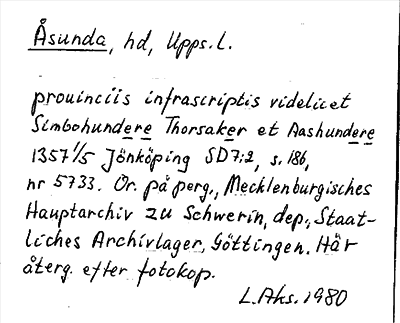 Åsunda, hd, Upps. l.
prouinciis infrascriptis videlicet
Simbohundere Thorsaker et Aashundere
1357 1/5 Jönköping SD 7:2, s. 186,
nr 5733. Or. på perg., Mecklenburgisches
Hauptarchiv zu Schwerin, dep., Staat-
liches Archivlager, Göttingen. Här
återg. efter fotokop.
L. Aks. 1980